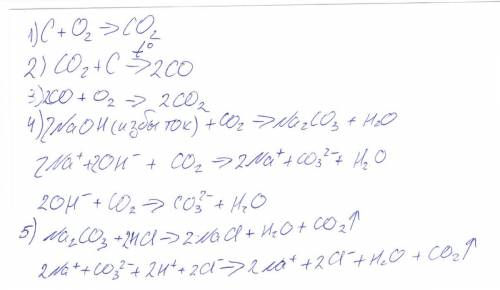 1) C + O₂ → CO₂
2) CO₂ + C →t° 2CO
3) 2CO + O₂ → 2CO₂
4) 2NaOH (избыток) + CO₂ → Na₂CO₃ + H₂O
2Na⁺ + 2OH⁻ + CO₂ → 2Na⁺ + CO₃²⁻ + H₂O
2OH⁻ + CO₂ → CO₃²⁻ + H₂O
5) Na₂CO₃ + 2HCl → 2NaCl + H₂O + CO₂↑
2Na⁺ + CO₃²⁻ + 2H⁺ + 2Cl⁻ → 2Na⁺ + 2Cl⁻ + H₂O + CO₂↑